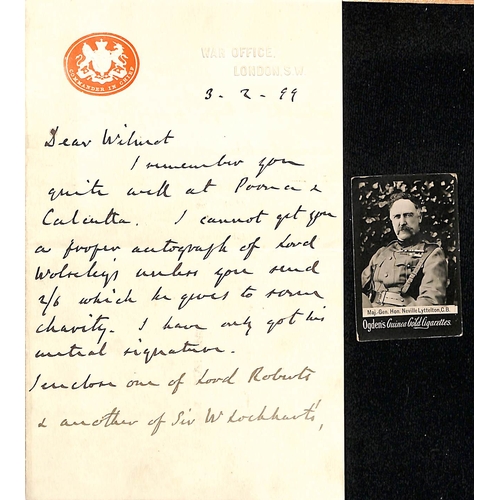 COMMANDER IN CHIEF
WAR OFFICE,
LONDON. S.W.
3 - 2 - 99
Dear Wilmot
I remember you
quite well at Poona &
Calcutta. I cannot get you
a proper autograph of Lord
Wolseley's unless you send
2/6 which he gives to some
charity. I have only got his
initial signature.
I enclose one of Lord Roberts
& another of Sir W Lockhart's,
Maj.-Gen. Hon. Neville Lyttelton, C.B.
Ogden's Guinea Gold Cigarettes.